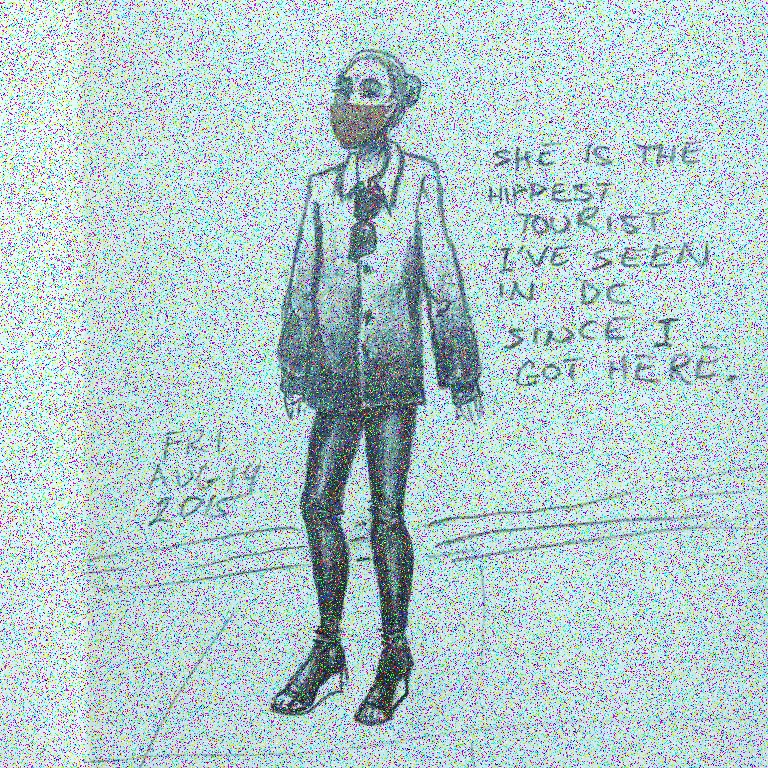 SHE IS THE
HIPPEST
TOURIST
I'VE SEEN
IN DC
SINCE I
GOT HERE.
FRI
AUG 14
2015